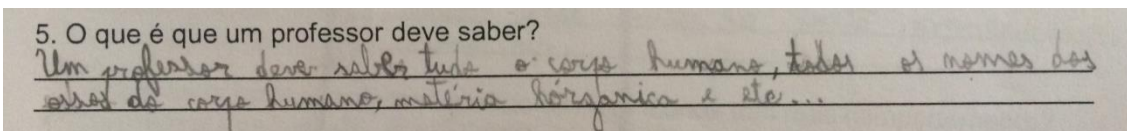 5. O que é que um professor deve saber?
Um professor deve saber tudo o corpo humano, todos os nomes dos
ossos do corpo humano, matéria hórganica e etc...